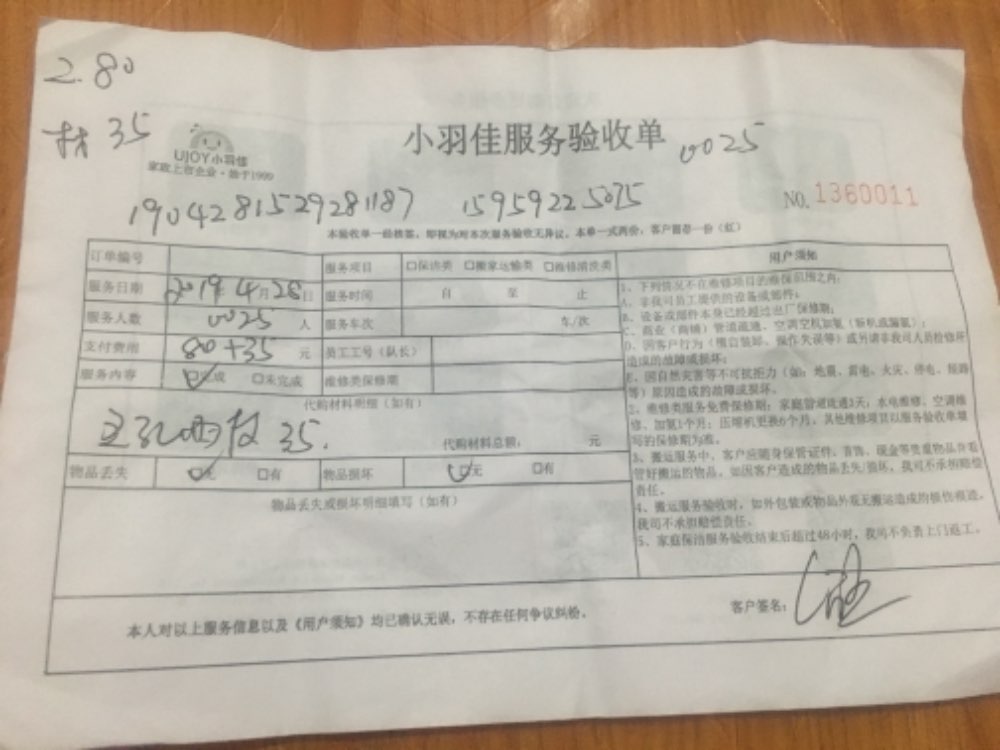 2.80
材 35
UJOY小羽佳
家政上市企业·始于1999
小羽佳服务验收单
0025
1904281529281187 15959225075
NO. 1360011
本验收单一经核签，即视为对本次服务验收无异议。本单一式两份，客户留存一份（红）
订单编号
服务项目 □保洁类 □搬家运输类 □维修清洗类
服务日期 2019年4月28日
服务时间 自 至 止
服务人数 0025 人
服务车次 车/次
支付费用 80+35 元
员工工号（队长）
服务内容 ☑完成 □未完成
维修类保修期
代购材料明细（如有）
35.
代购材料总额： 元
物品丢失 ☑无 □有
物品损坏 ☑无 □有
物品丢失或损坏明细填写（如有）
用户须知
1、下列情况不在维修项目的维保范围之内：
A、非我司员工提供的设备或部件；
B、设备或部件本身已经超过出厂保修期；
C、商业（商铺）管道疏通、空调空机加氟（新机或漏氟）；
D、因客户行为（擅自装卸、操作失误等）或另请非我司人员检修所
造成的故障或损坏；
E、因自然灾害等不可抗拒力（如：地震、雷电、火灾、停电、短路
等）原因造成的故障或损坏。
2、维修类服务免费保修期：家庭管道疏通3天；水电维修、空调维
修、加氟1个月；压缩机更换6个月。其他维修项目以服务验收单填
写的保修期为准。
3、搬运服务中，客户应随身保管证件、首饰、现金等贵重物品并看
管好搬运的物品。如因客户造成的物品丢失/损坏，我司不承担赔偿
责任。
4、搬运服务验收时，如外包装或物品外观无搬运造成的损伤痕迹，
我司不承担赔偿责任。
5、家庭保洁服务验收结束后超过48小时，我司不负责上门返工。
客户签名：
本人对以上服务信息以及《用户须知》均已确认无误，不存在任何争议纠纷。